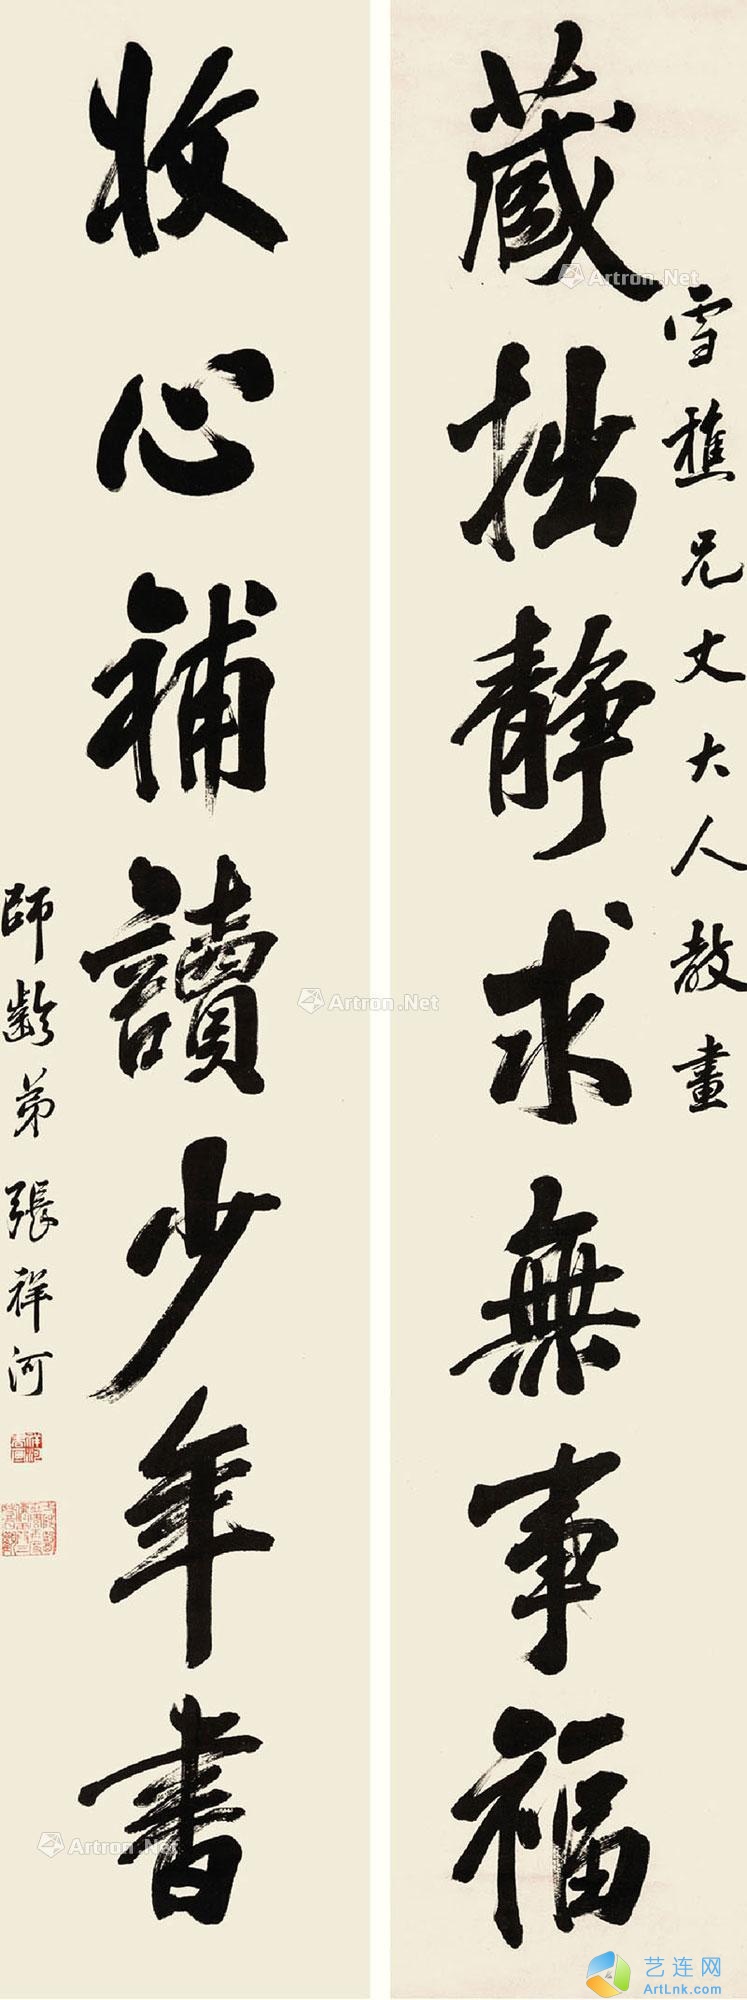 藏拙靜求無事福
雪樵兄丈大人教畫
收心補讀少年書
師齡弟張祥河
Artron.Net
Artron.Net
Artron.Net
艺连网
ArtLnk.com